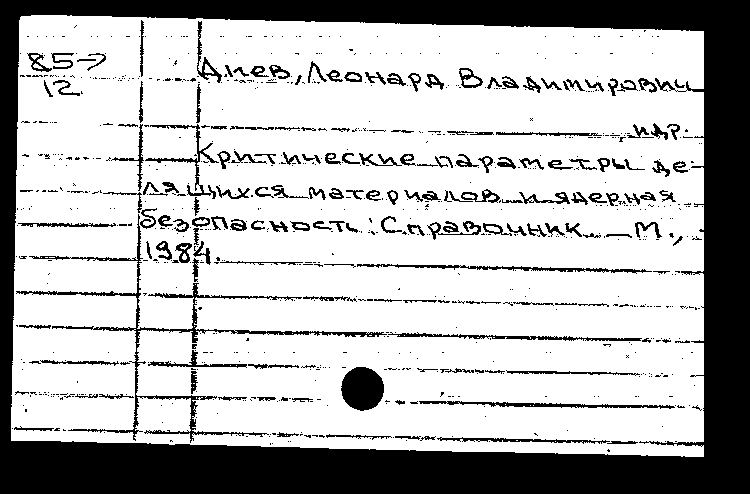 85-7
12
Диев, Леонард Владимирович
, и др.
Критические параметры де-
лящихся материалов и ядерная
безопасность: Справочник. — М.,
1984.